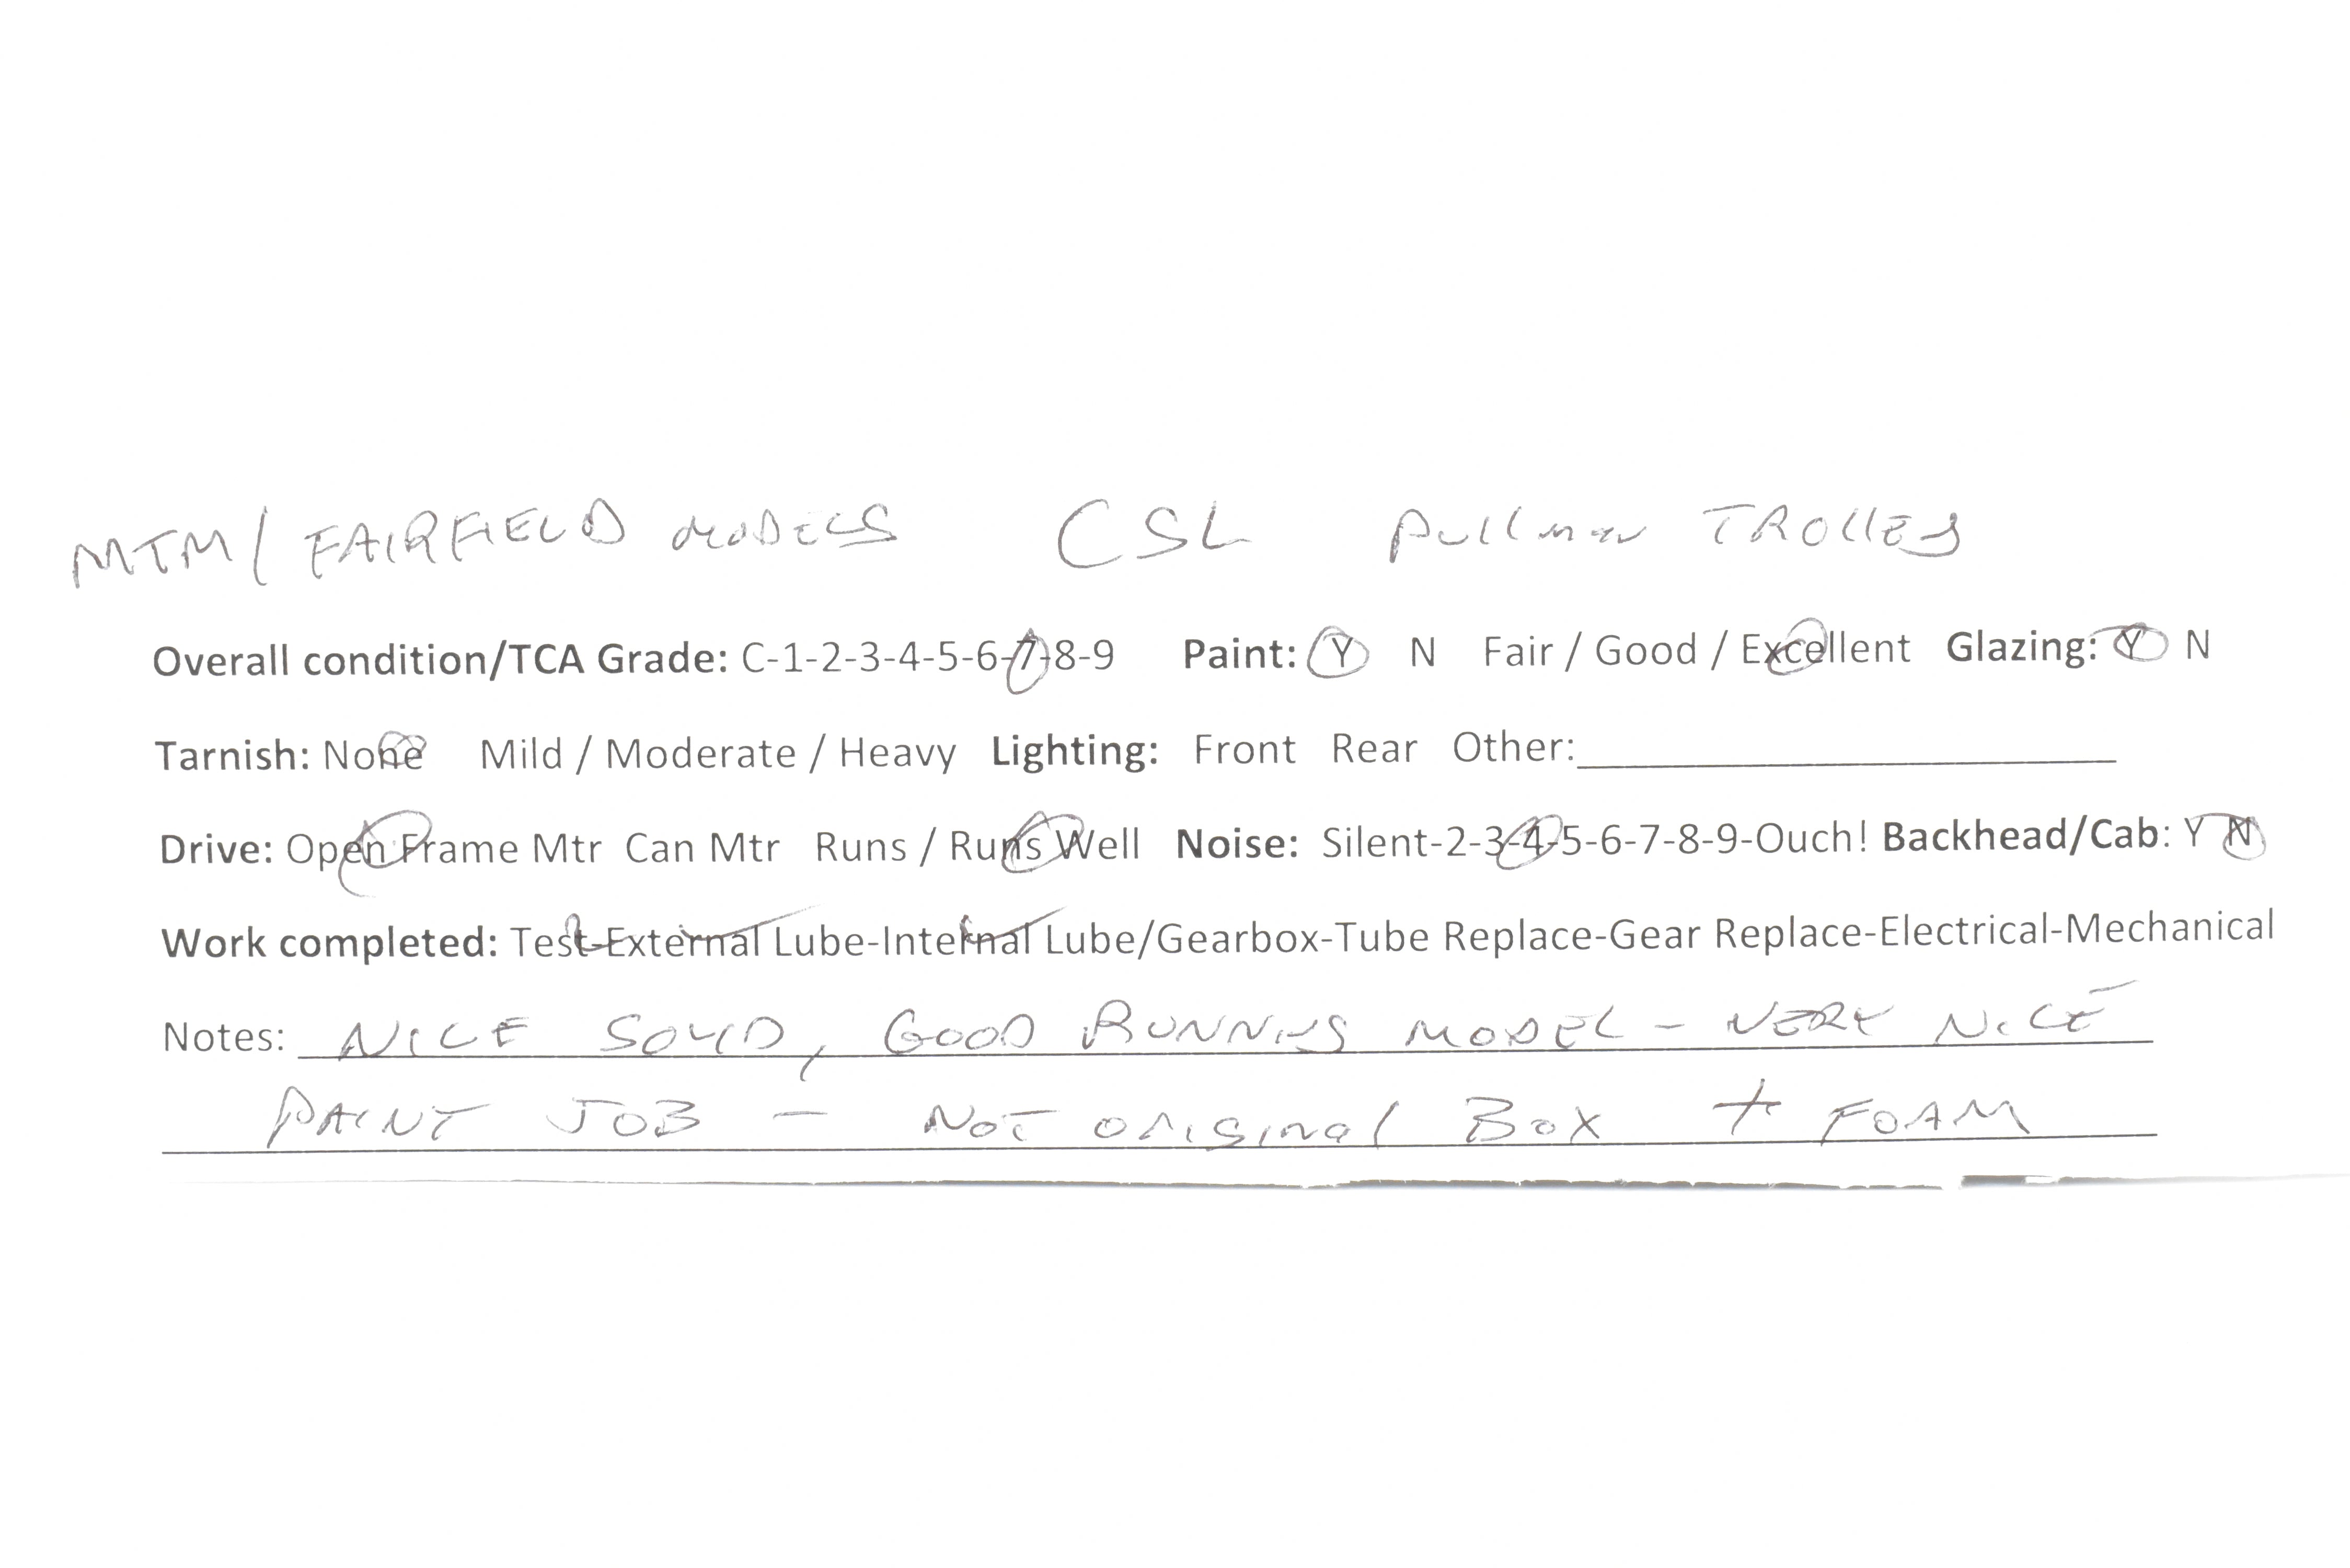 MTM/FAIRFIELD MODELS CSL Pullman TROLLEY
Overall condition/TCA Grade: C-1-2-3-4-5-6-7-8-9 Paint: Y N Fair / Good / Excellent Glazing: Y N
Tarnish: None Mild / Moderate / Heavy Lighting: Front Rear Other:
Drive: Open Frame Mtr Can Mtr Runs / Runs Well Noise: Silent-2-3-4-5-6-7-8-9-Ouch! Backhead/Cab: Y N
Work completed: Test-External Lube-Internal Lube/Gearbox-Tube Replace-Gear Replace-Electrical-Mechanical
Notes: NICE SOLID, GOOD RUNNING MODEL - VERY NICE
PAINT JOB - NOT ORIGINAL BOX + FOAM